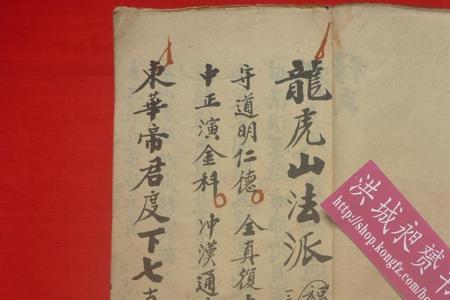 龍虎山法派
守道明仁德 全真復
中正演金科 冲漢通
東華帝君度下七真
洪城昶赟书
http://shop.kongfz.com/